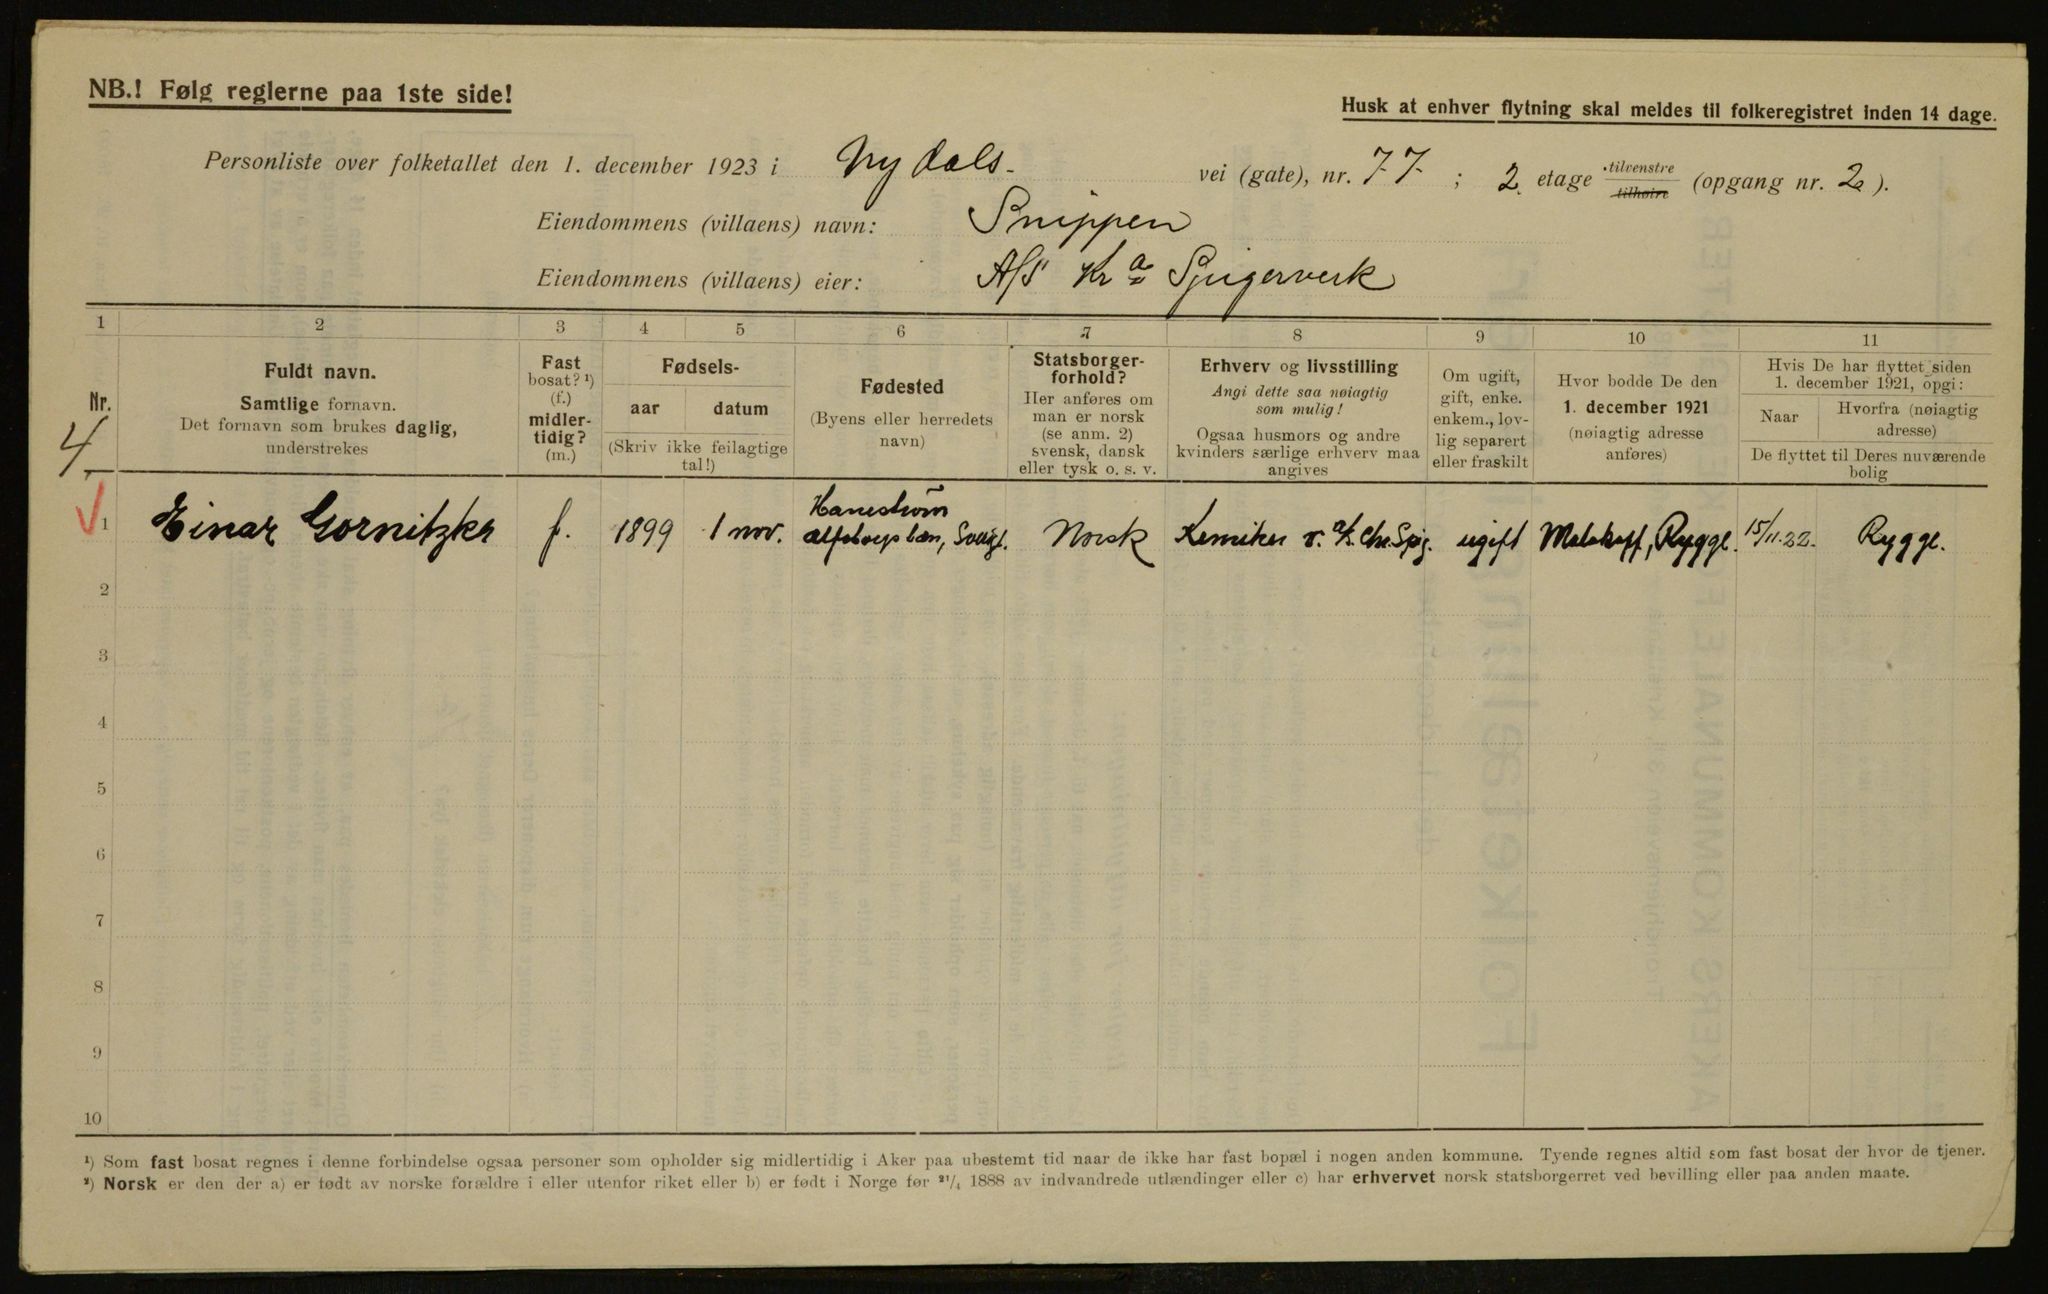 NB.! Følg reglerne paa 1ste side!
Husk at enhver flytning skal meldes til folkeregistret inden 14 dage.
Personliste over folketallet den 1. december 1923 i Nydals- vei (gate), nr. 77 ; 2. etage tilvenstre tilhøire (opgang nr. 2 ).
Eiendommens (villaens) navn: Snippen
Eiendommens (villaens) eier: A/S Kr a Spigerverk
1 2 3 4 5 6 7 8 9 10 11
Nr.
4
Fuldt navn.
Samtlige fornavn.
Det fornavn som brukes daglig,
understrekes
Fast
bosat? ¹)
(f.)
midler-
tidig?
(m.)
Fødsels-
aar datum
(Skriv ikke feilagtige
tal!)
Fødested
(Byens eller herredets
navn)
Statsborger-
forhold?
Her anføres om
man er norsk
(se anm. 2)
svensk, dansk
eller tysk o. s. v.
Erhverv og livsstilling
Angi dette saa nøiagtig
som mulig!
Ogsaa husmors og andre
kvinders særlige erhverv maa
angives
Om ugift,
gift, enke.
enkem., lov-
lig separert
eller fraskilt
Hvor bodde De den
1. december 1921
(nøiagtig adresse
anføres)
Hvis De har flyttet siden
1. december 1921, opgi:
Naar Hvorfra (nøiagtig
adresse)
De flyttet til Deres nuværende
bolig
1 Einar Gornitzka f. 1899 1 nov. Norsk Kemiker v. A/S Chr. Spig. ugift Rygge. 15/11.22. Rygge.
2
3
4
5
6
7
8
9
10
¹) Som fast bosat regnes i denne forbindelse ogsaa personer som opholder sig midlertidig i Aker paa ubestemt tid naar de ikke har fast bopæl i nogen anden kommune. Tyende regnes altid som fast bosat der hvor de tjener.
²) Norsk er den der a) er født av norske forældre i eller utenfor riket eller b) er født i Norge før ²¹/₄ 1888 av indvandrede utlændinger eller c) har erhvervet norsk statsborgerret ved bevilling eller paa anden maate.